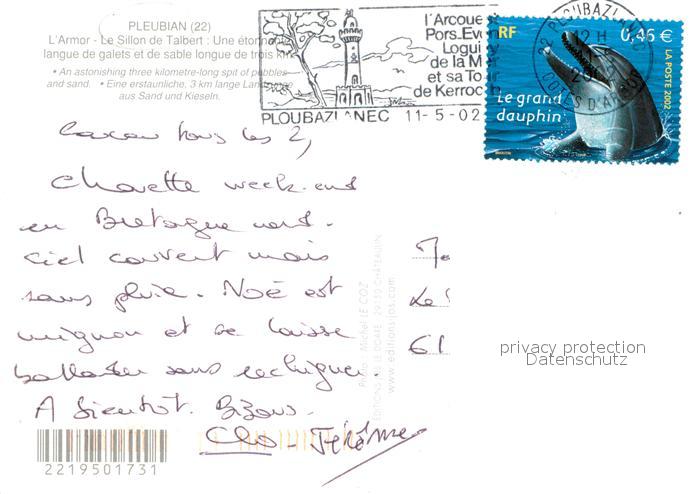 PLEUBIAN (22)
L'Armor - Le Sillon de Talbert : Une étonn
langue de galets et de sable longue de trois k
• An astonishing three kilometre-long spit of pebbles
and sand. • Eine erstaunliche, 3 km lange Land
aus Sand und Kieseln.
l'Arcoue
Pors.Eve
Logui
de la M
et sa To
de Kerroc
PLOUBAZLANEC 11-5-02
PLOUBAZLANEC
12 H
CÔTES D'ARMOR
RF
0,46 €
LA POSTE 2002
Le grand
dauphin
Coucou tous les 2,
Chouette week-end
en Bretagne nord.
ciel couvert mais
sans pluie. Noé est
mignon et se laisse
ballader sans rechigner.
A bientôt. Bizous.
Clo - Jérôme
Photo Michel LE COZ
ÉDITIONS JOS LE DOARÉ, 29150 CHÂTEAULIN
www.editionsjos.com
Le
61
privacy protection
Datenschutz
2219501731